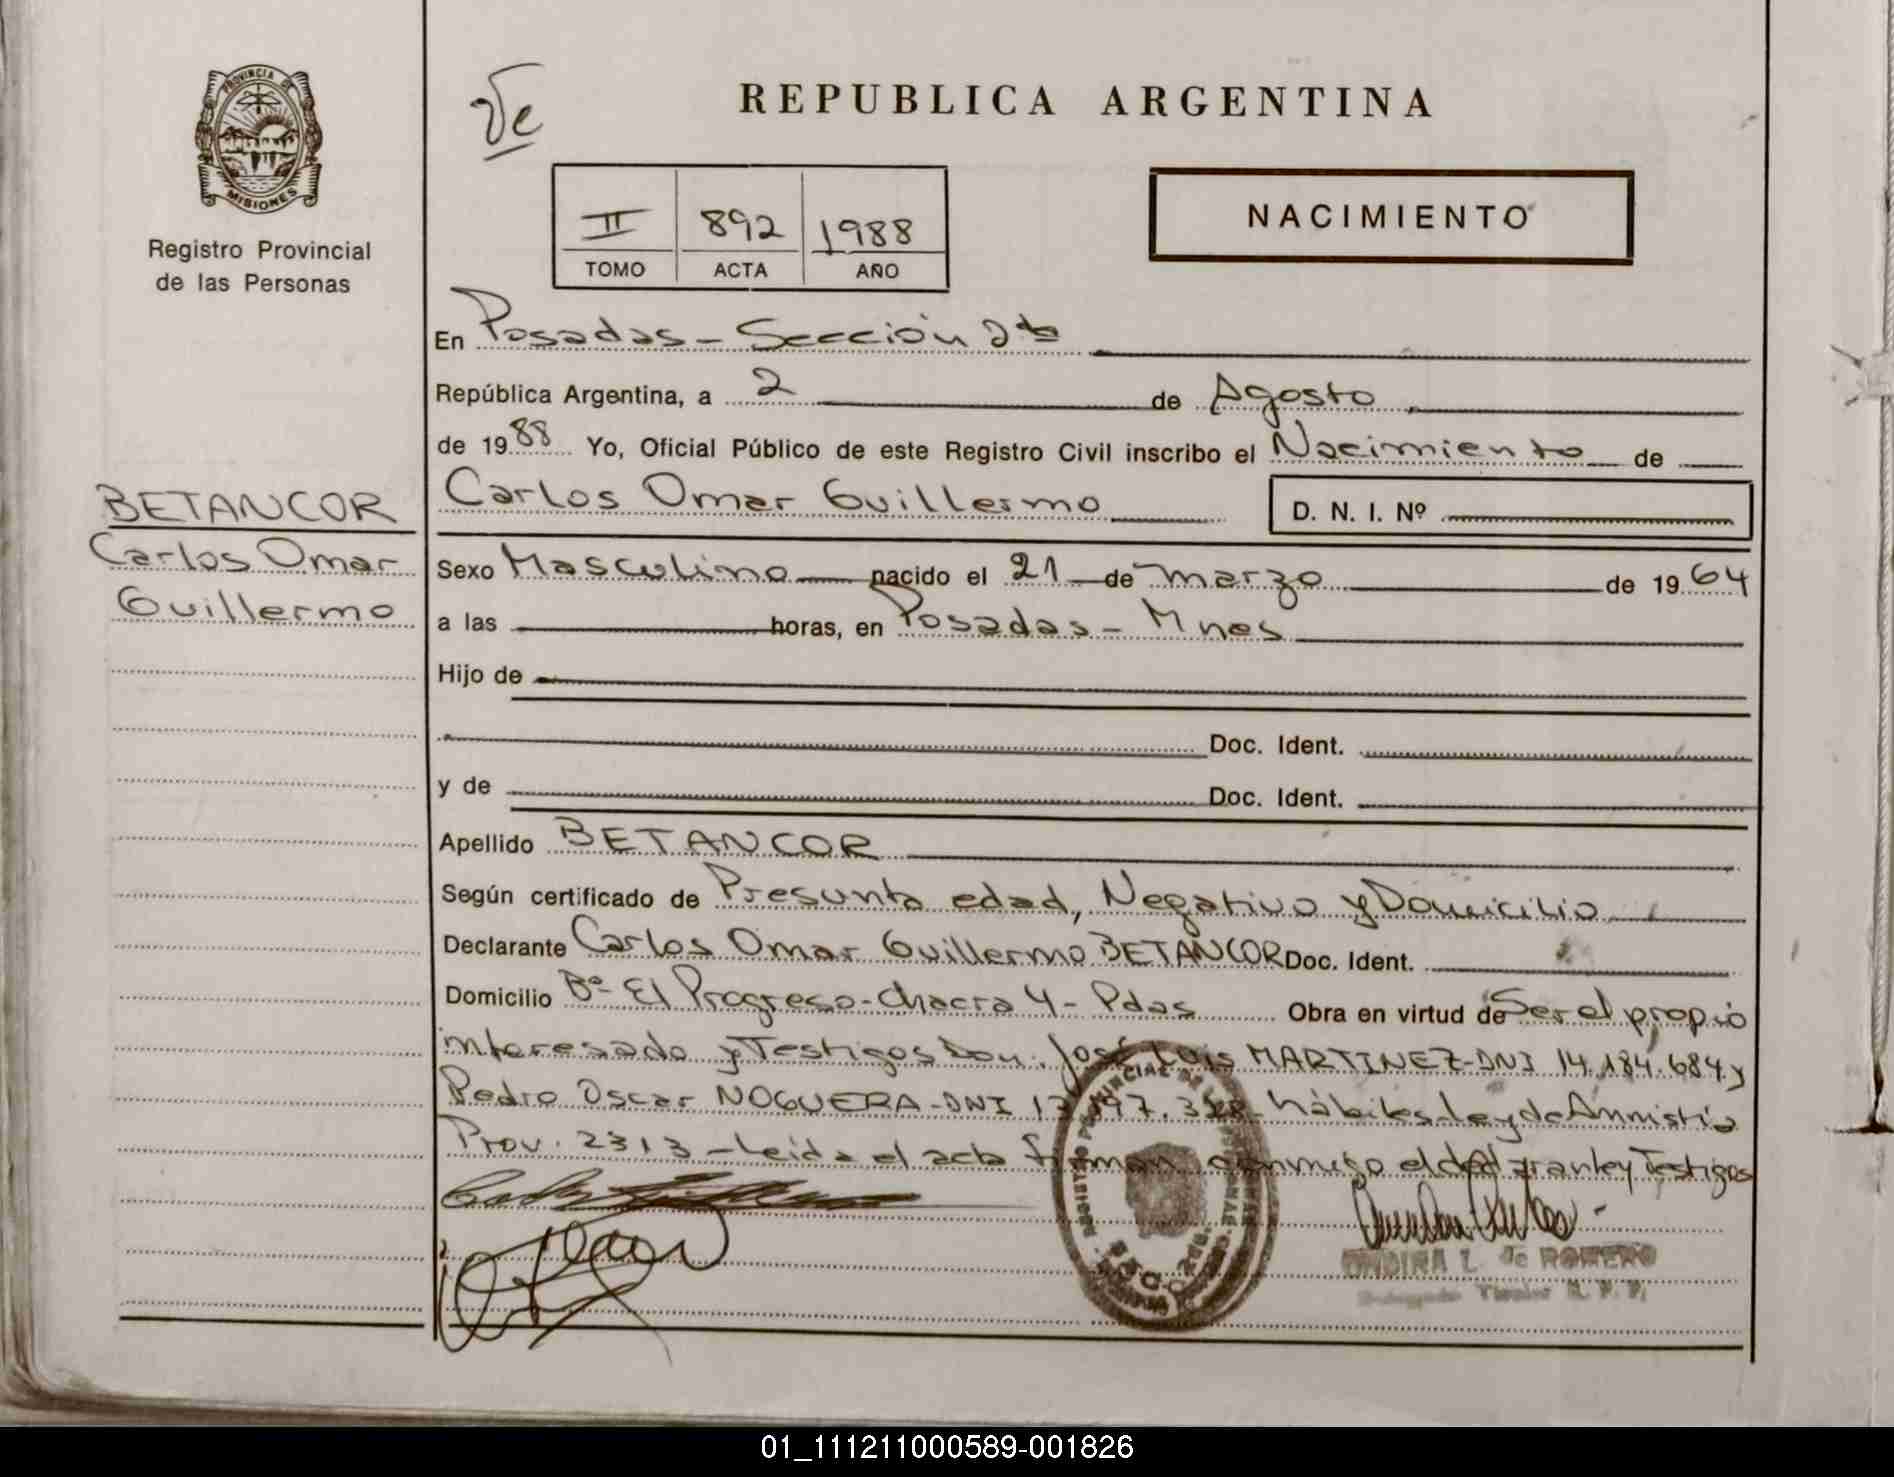 PROVINCIA DE
MISIONES
Registro Provincial
de las Personas
BETANCOR
Carlos Omar
Guillermo
REPUBLICA ARGENTINA
II 892 1988
TOMO ACTA AÑO
NACIMIENTO
En Posadas - Sección 2da
República Argentina, a 2 de Agosto
de 1988 Yo, Oficial Público de este Registro Civil inscribo el Nacimiento de
Carlos Omar Guillermo D. N. I. Nº
Sexo Masculino nacido el 21 de marzo de 1964
a las horas, en Posadas - Mnes
Hijo de
Doc. Ident.
y de Doc. Ident.
Apellido BETANCOR
Según certificado de Presunta edad, Negativo y Domicilio
Declarante Carlos Omar Guillermo BETANCOR Doc. Ident.
Domicilio Bº El Progreso - Chacra 4 - Pdas Obra en virtud de Ser el propio
interesado y Testigos Don: José Luis MARTINEZ - DNI 14.184.684 y
Pedro Oscar NOGUERA - DNI hábiles Ley de Amnistía
Prov. 2313 - Leída el acta firman conmigo el y Testigos
L. de ROMERO
Titular R. P. P.
01_111211000589-001826